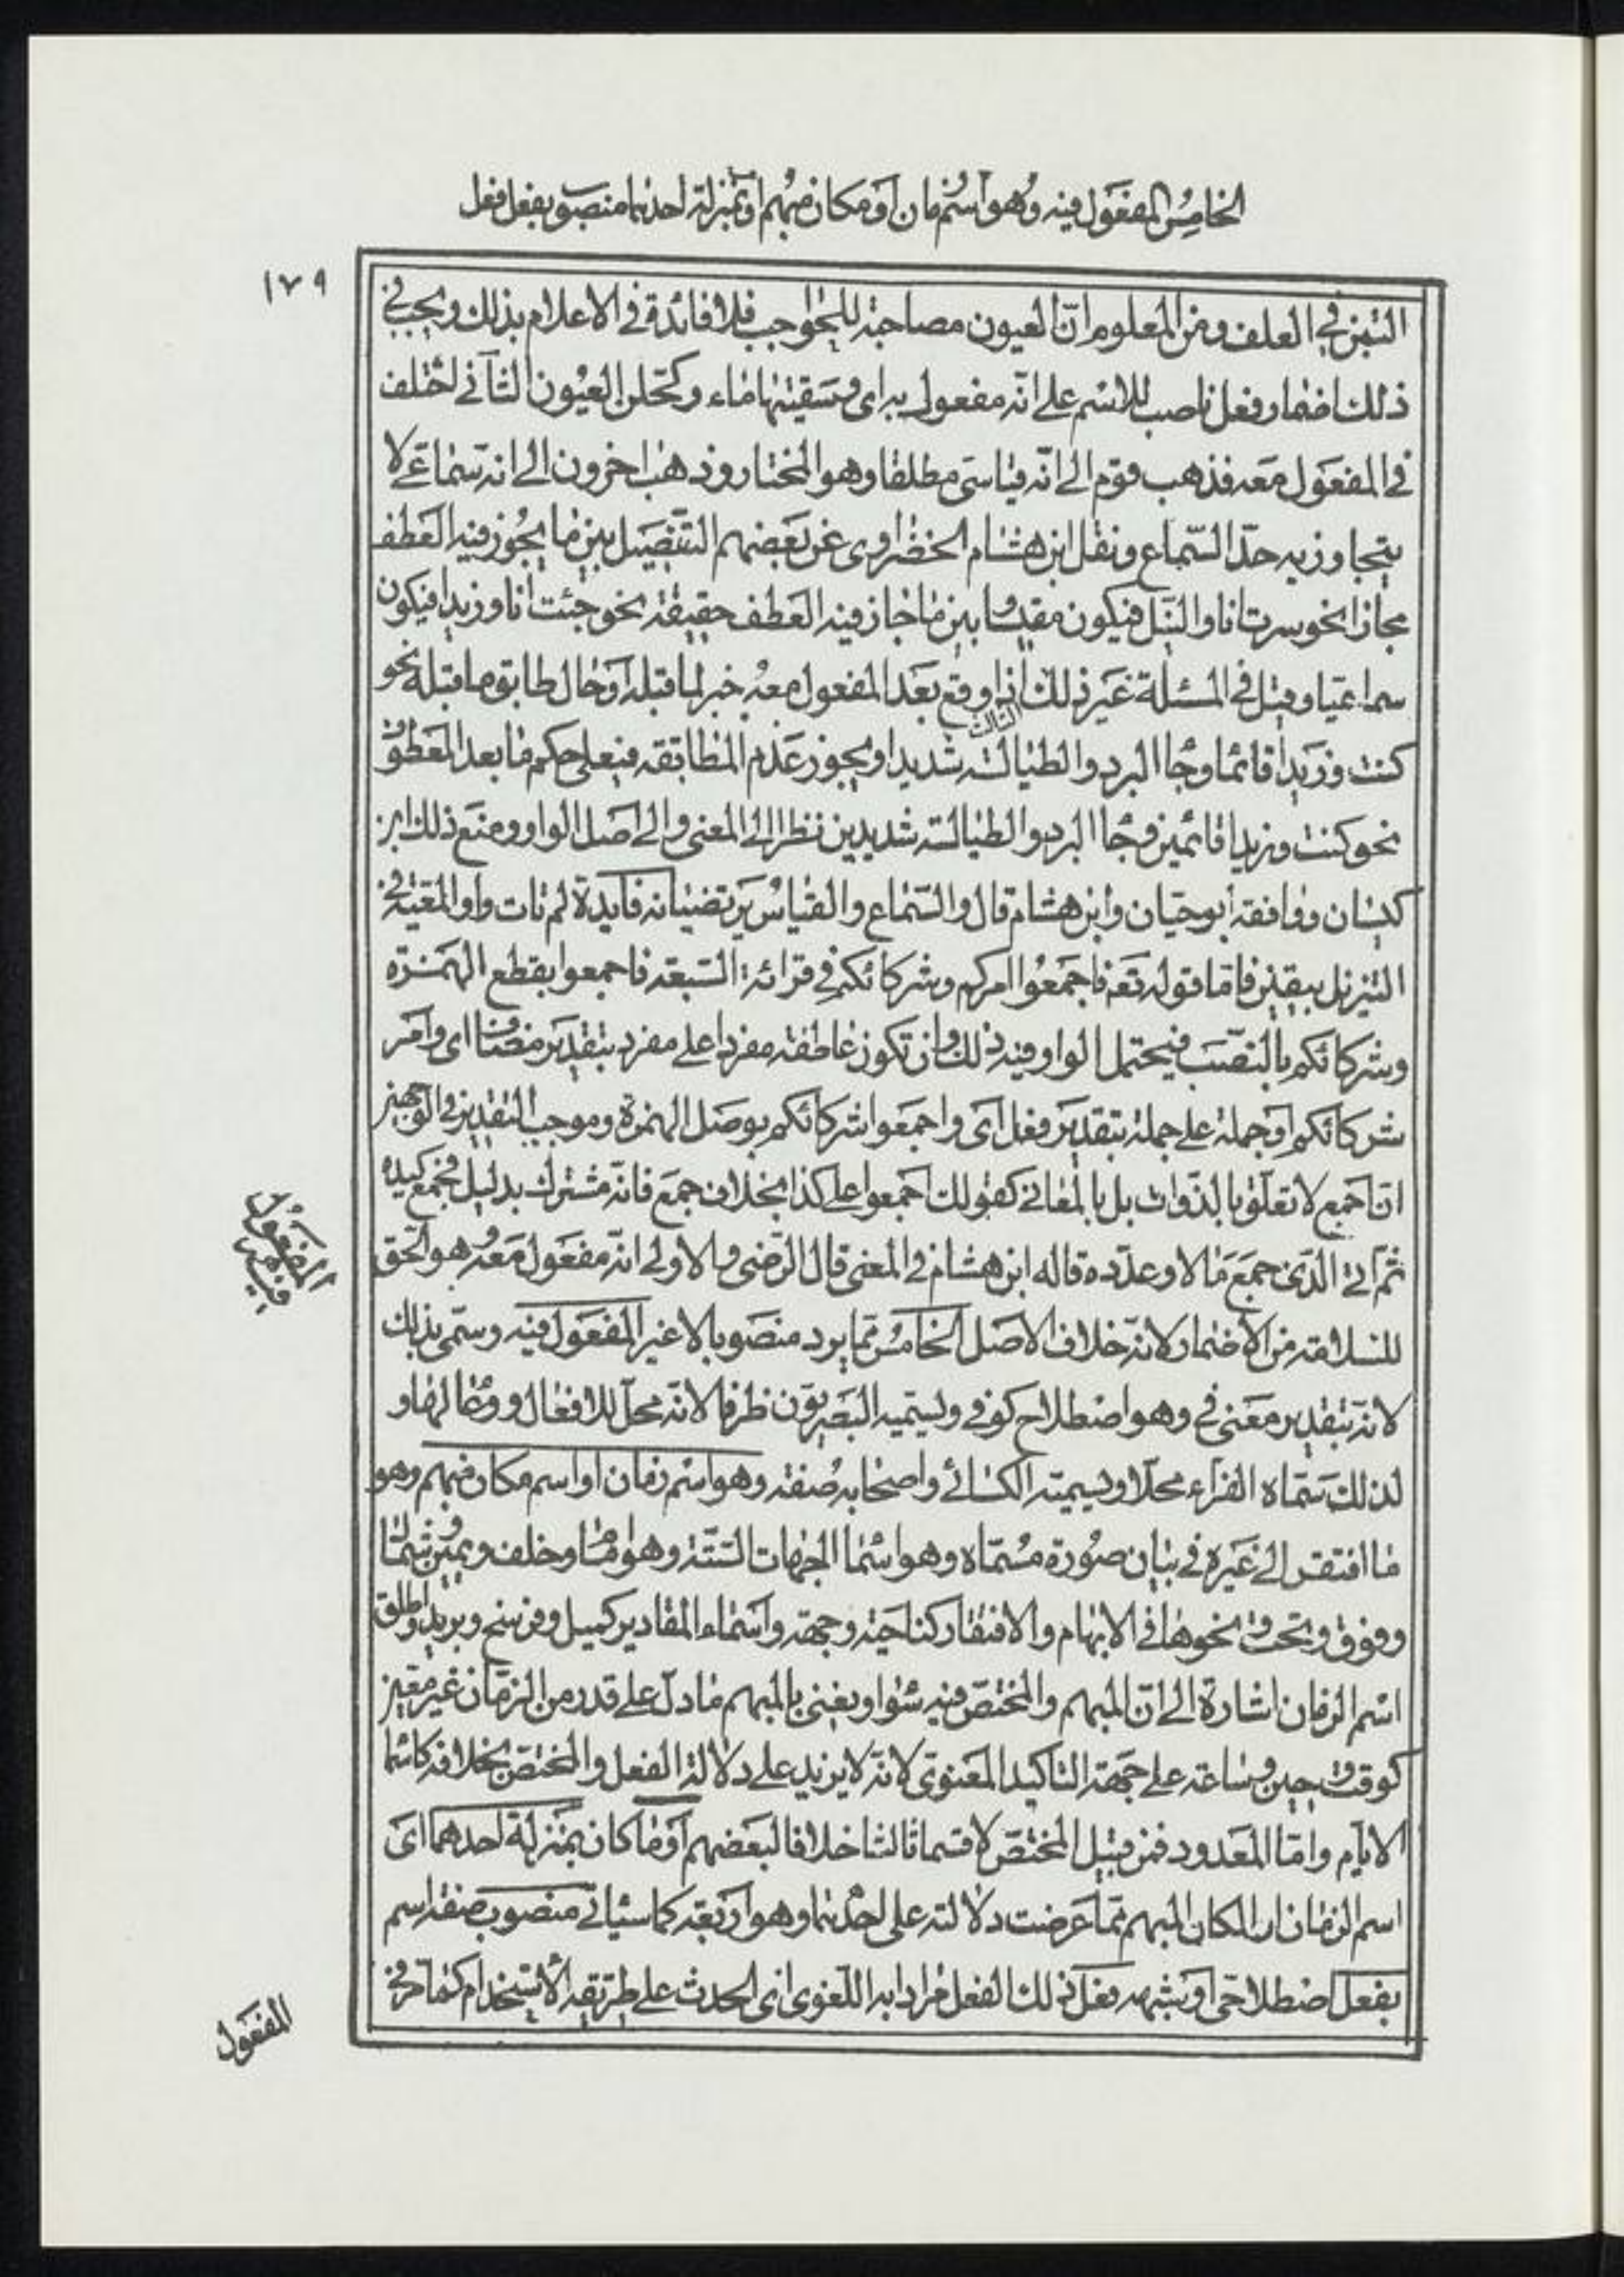 الخامس المفعول فيه وهو اسم زمان او مكان مبهم او بمنزلة احدهما منصوب بفعل فعل
١٧٩
التبن في العلف ومن المعلوم انّ العيون مصاحبة للحواجب فلا فائدة في الاعلام بذلك ويجب في
ذلك اضمار فعل ناصب للاسم على انّه مفعول به اى وسقيتها ماء وكحلن العيون الثاني اختلف
في المفعول معه فذهب قوم الى انّه قياسى مطلقا وهو المختار وذهب اخرون الى انه سماعى لا
يتجاوز به حدّ السّماع ونقل ابن هشام الخضراوى عن بعضهم التفصيل بين ما يجوز فيه العطف
مجازا نحو سرت انا والنيل فيكون مقيسا وبين ما جاز فيه العطف حقيقة نحو جئت انا وزيدا فيكون
سماعيا وقيل في المسئلة غير ذلك الثالث اذا وقع بعد المفعول معه خبر لما قبله او حال طابق ما قبله نحو
كنت وزيدا قائما وجا البرد والطيالسة شديدا ويجوز عدم المطابقة فيعطى حكم ما بعد المعطوف
نحو كنت وزيدا قائمين وجا البرد والطيالسة شديدين نظرا الى المعنى والى اصل الواو ومنع ذلك ابن
كيسان ووافقه ابو حيان وابن هشام قال والسّماع والقياس يرتضيانه فايدة لم تات واو المعيّة في
التنزيل بيقين فاما قوله تعه فاجمعوا امركم وشركائكم في قرائة السّبعة فاجمعوا بقطع الهمزة
وشركائكم بالنصب فيحتمل الواو فيه ذلك وان تكون عاطفة مفردا على مفرد بتقدير مضاف اى وامر
شركائكم او جملة على جملة بتقدير فعل اى واجمعوا شركائكم بوصل الهمزة وموجب التقدير في الوجهين
انّ اجمع لا تعلّق بالذّوات بل بالمعاني كقولك اجمعوا على كذا بخلاف جمع فانّه مشترك بدليل فجمع كيده
ثم اتى الذى جمع مالا وعدّده قاله ابن هشام في المغنى قال الرّضى والاولى انّه مفعول معه وهو الحق
للسلامة من الاضمار لانه خلاف الاصل الخامس ممّا يرد منصوبا لا غير المفعول فيه وسمّى بذلك
المفعول فيه
لانّه بتقدير معنى في وهو اصطلاح كوفى ويسميه البصريّون ظرفا لانّه محلّ للافعال ووعا لها و
لذلك سماه الفراء محلّا ويسميه الكسائى واصحابه صفة وهو اسم زمان او اسم مكان مبهم وهو
ما افتقر الى غيره في بيان صورة مسمّاه وهو اسما الجهات الستّة وهو امام وخلف ويمين وشمال
وفوق وتحت ونحوها في الابهام والافتقار كناحية وجهة واسماء المقادير كميل وفرسخ وبريد واطلق
اسم الزمان اشارة الى انّ المبهم والمختصّ فيه سوا ويعنى بالمبهم ما دلّ على قدر من الزمان غير معيّن
كوقت وحين وساعة على جهة التاكيد المعنوى لانّه لا يزيد على دلالة الفعل والمختص بخلافه كاسما
الايّام وامّا المعدود فمن قبيل المختصّ لا قسما ثالثا خلافا لبعضهم او ما كان بمنزلة احدهما اى
اسم الزمان او المكان المبهم ممّا عرضت دلالته على احدهما وهو اربعة كما سياتى منصوب صفة اسم
بفعل اصطلاحى او شبهه فعل ذلك الفعل مرادا به اللّغوى اى الحدث على طريقة الاستخدام كما مرّ في
المفعول